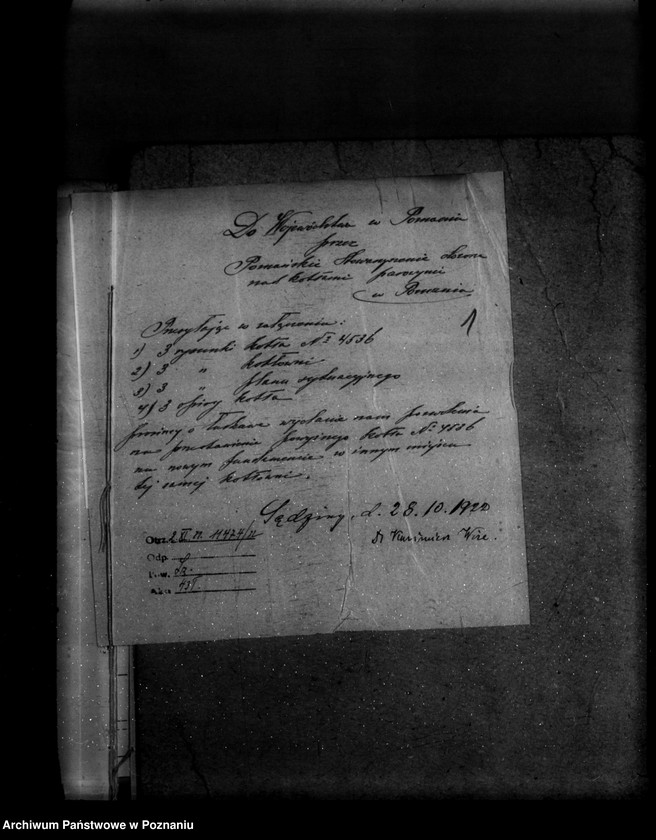 Do Województwa w Poznaniu
przez
Poznańskie Stowarzyszenie dozoru
nad kotłami parowymi
w Poznaniu
1
Przesyłając w załączeniu:
1) 3 rysunki kotła No 4536
2) 3 " kotłowni
3) 3 " planu sytuacyjnego
4) 3 opisy kotła
prosimy o łaskawe wydanie nam pozwolenia
na przestawienie powyższego kotła No 4536
na nowym fundamencie w innym miejscu
tej samej kotłowni.
Sędziny, d. 28.10.1922
Dr Kazimierz
Otrz. 2 XI 22. 11474/22
Odp.
Pow.
Akta
Archiwum Państwowe w Poznaniu